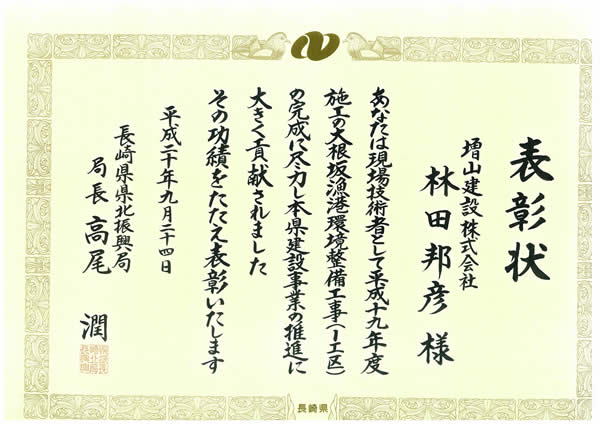 表彰状
増山建設株式会社
林田邦彦 様
あなたは現場技術者として平成十九年度
施工の大根坂漁港環境整備工事(1工区)
の完成に尽力し本県建設事業の推進に
大きく貢献されました
その功績をたたえ表彰いたします
平成二十年九月二十四日
長崎県県北振興局
局長 高尾 潤
長崎県